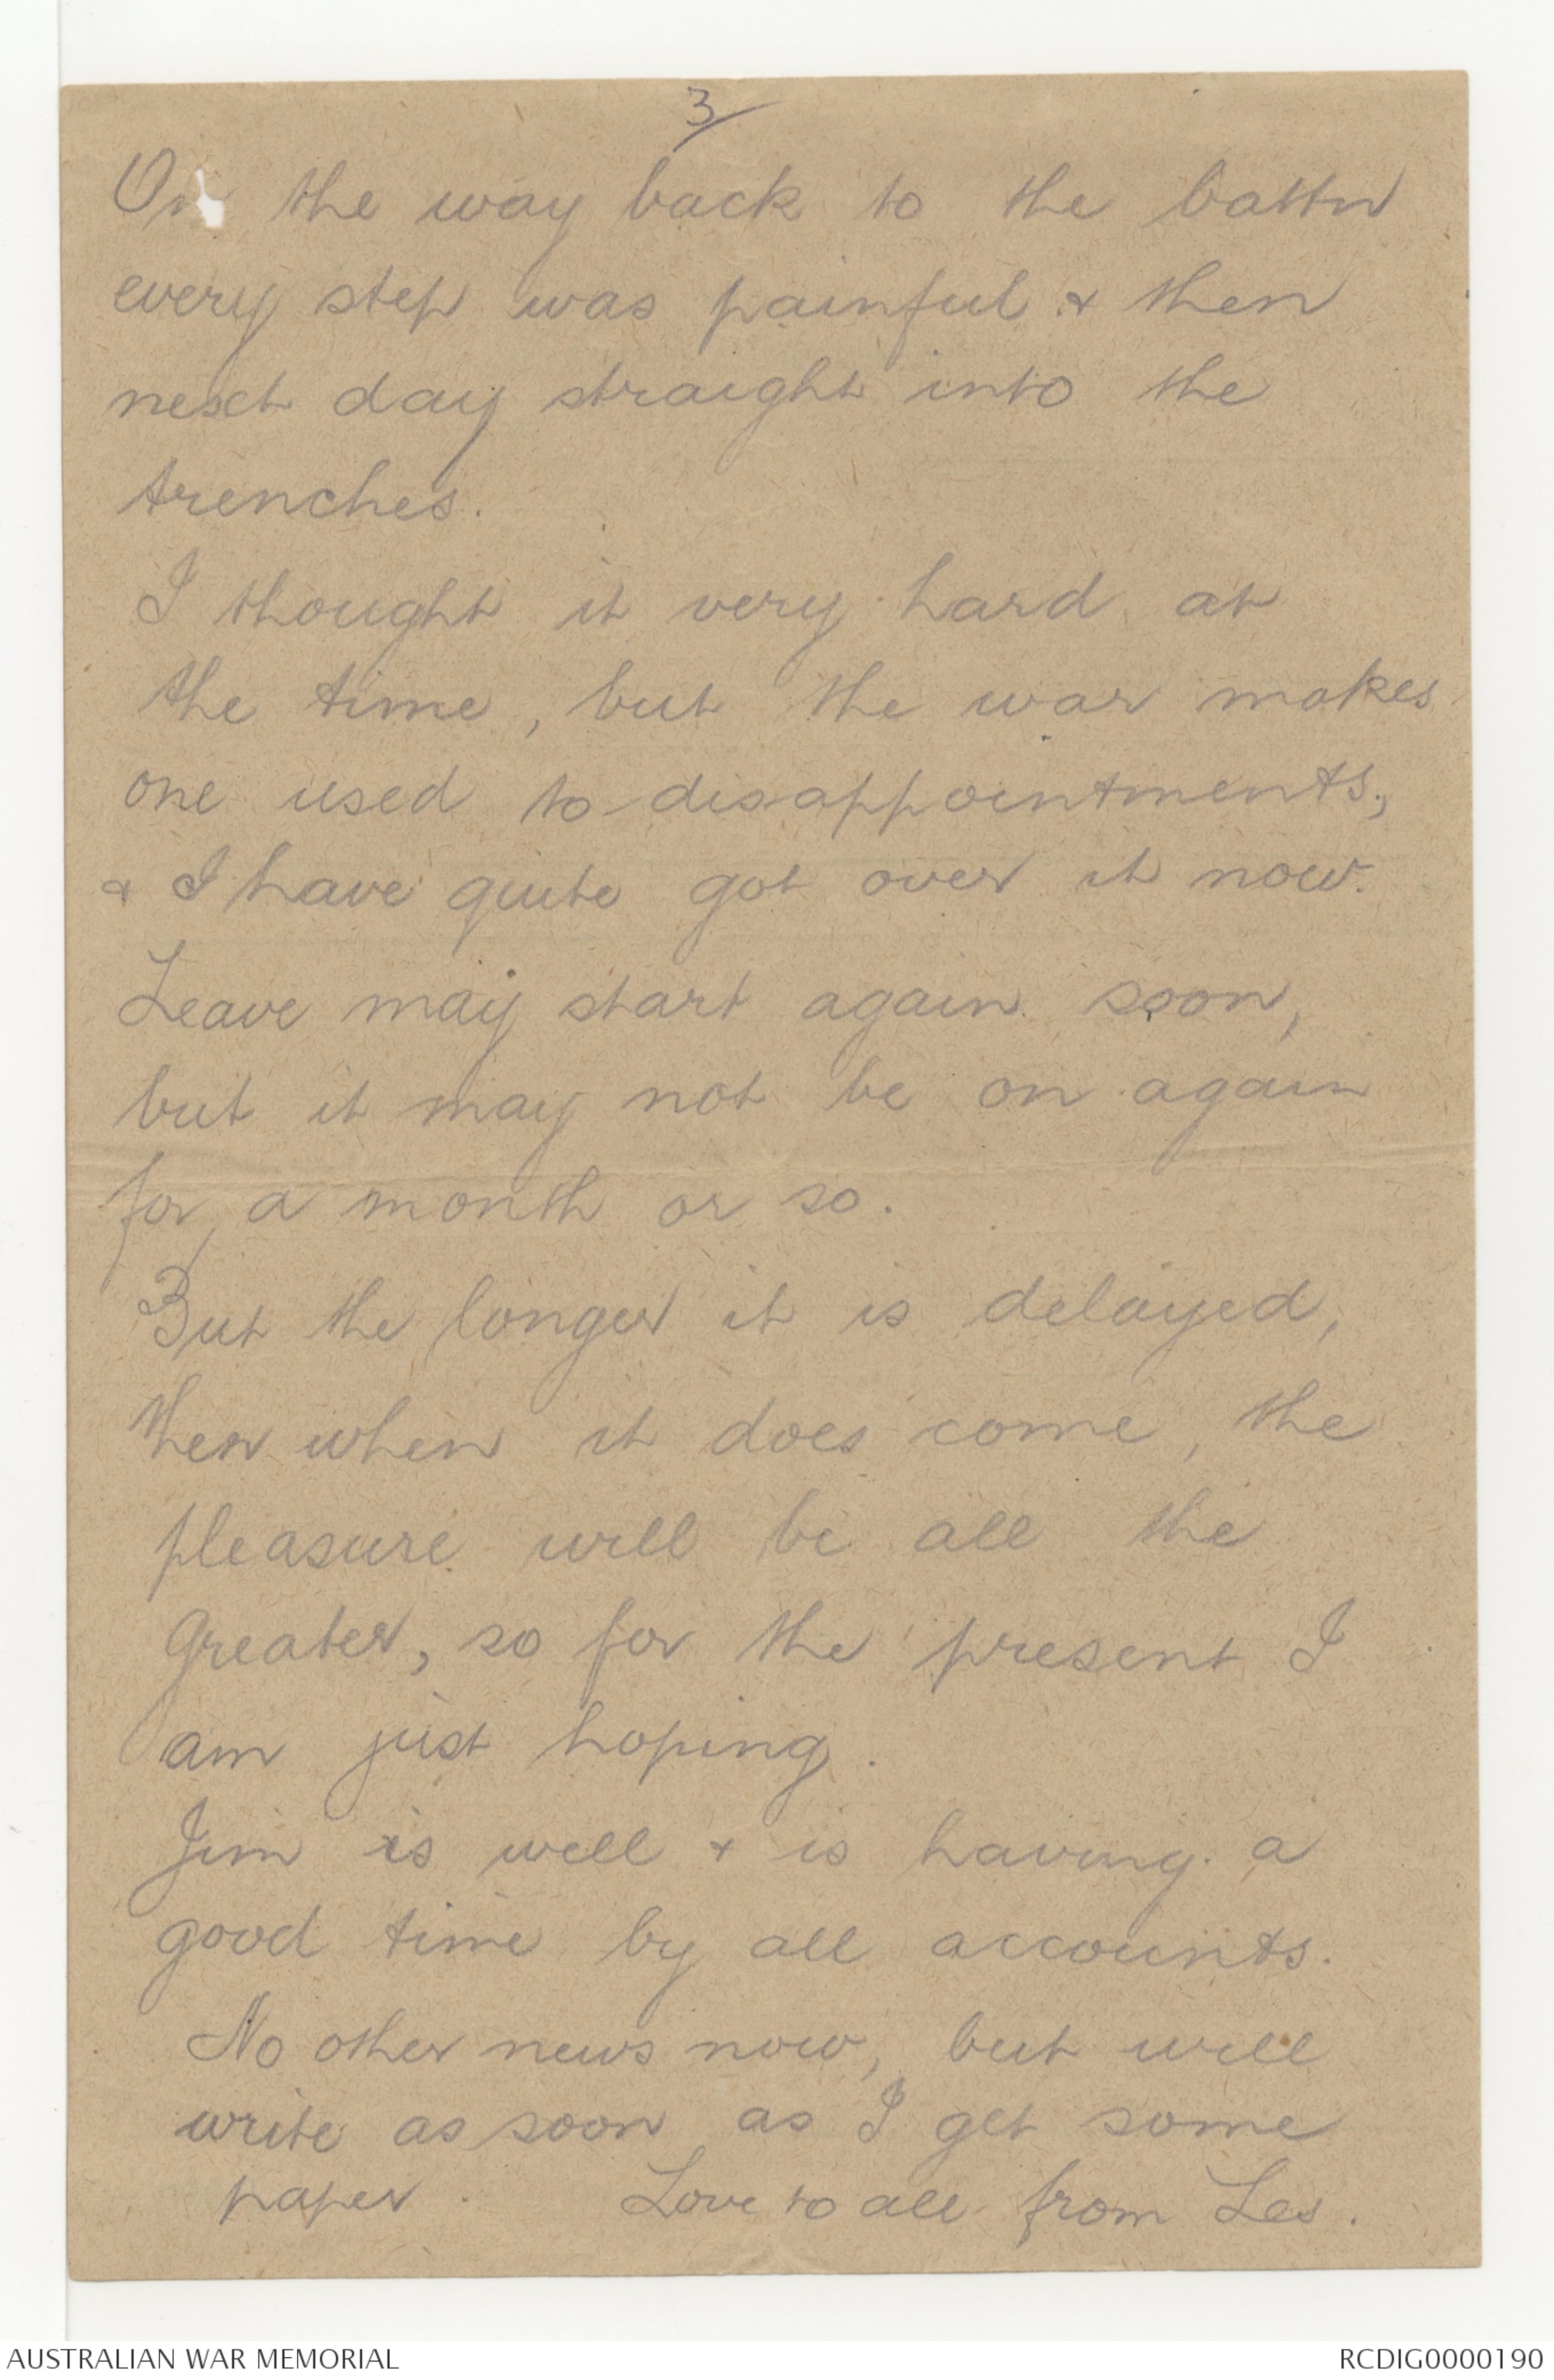 3/
On the way back to the battn
every step was painful & then
next day straight into the
trenches.
I thought it very hard at
the time, but the war makes
one used to disappointments,
& I have quite got over it now.
Leave may start again soon,
but it may not be on again
for a month or so.
But the longer it is delayed,
then when it does come, the
pleasure will be all the
greater, so for the present I
am just hoping.
Jim is well & is having a
good time by all accounts.
No other news now, but will
write as soon as I get some
paper. Love to all from Les.
AUSTRALIAN WAR MEMORIAL RCDIG0000190